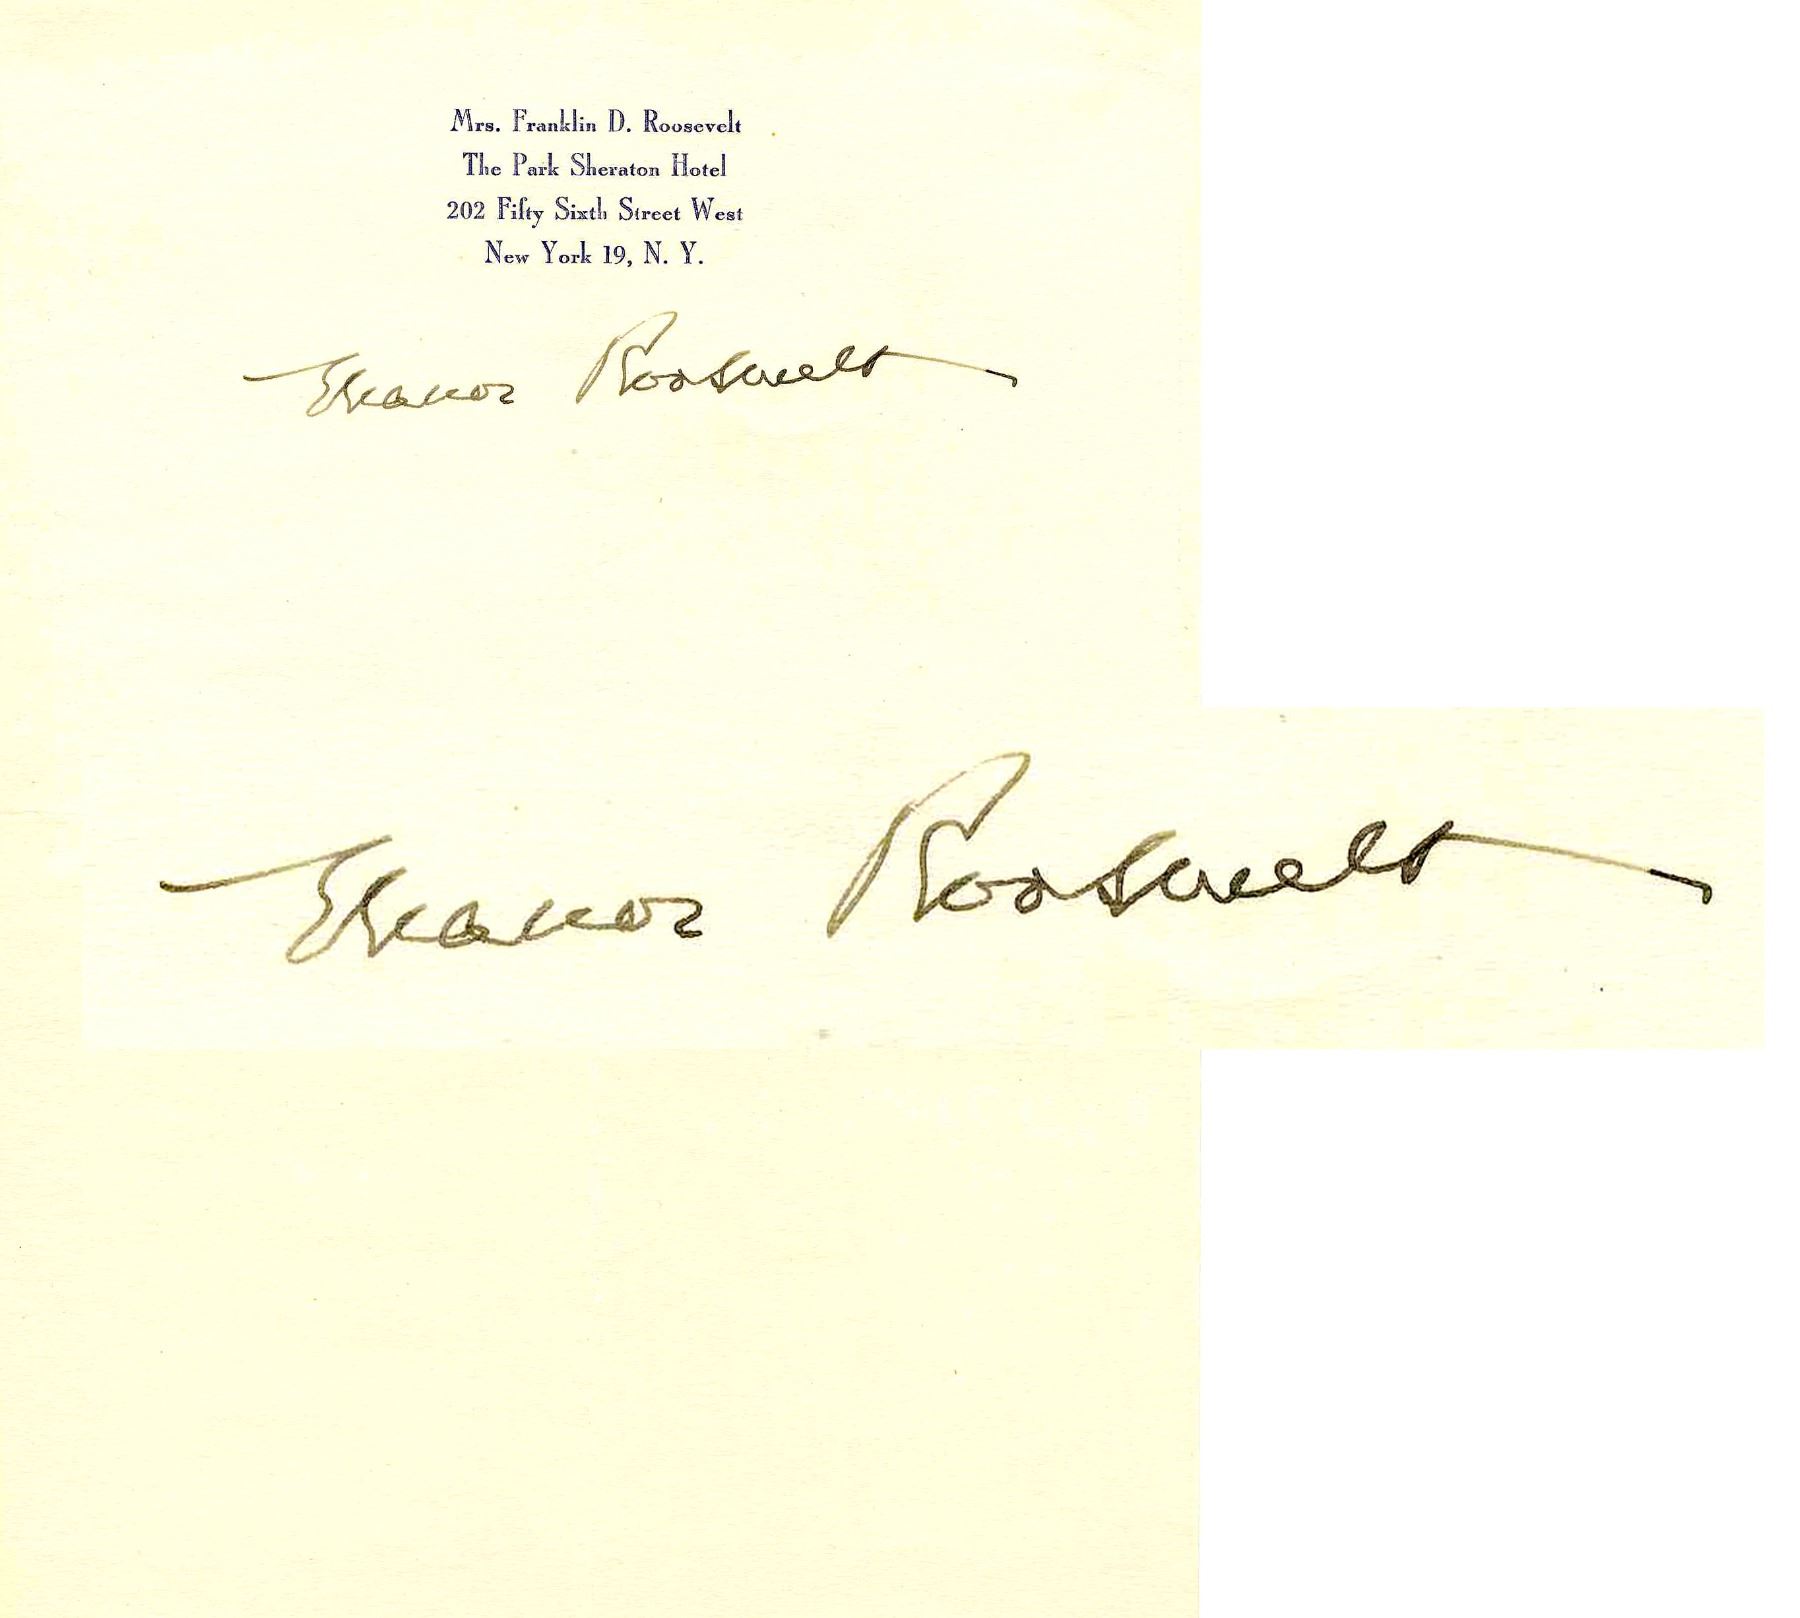 Mrs. Franklin D. Roosevelt
The Park Sheraton Hotel
202 Fifty Sixth Street West
New York 19, N. Y.
Eleanor Roosevelt
Eleanor Roosevelt